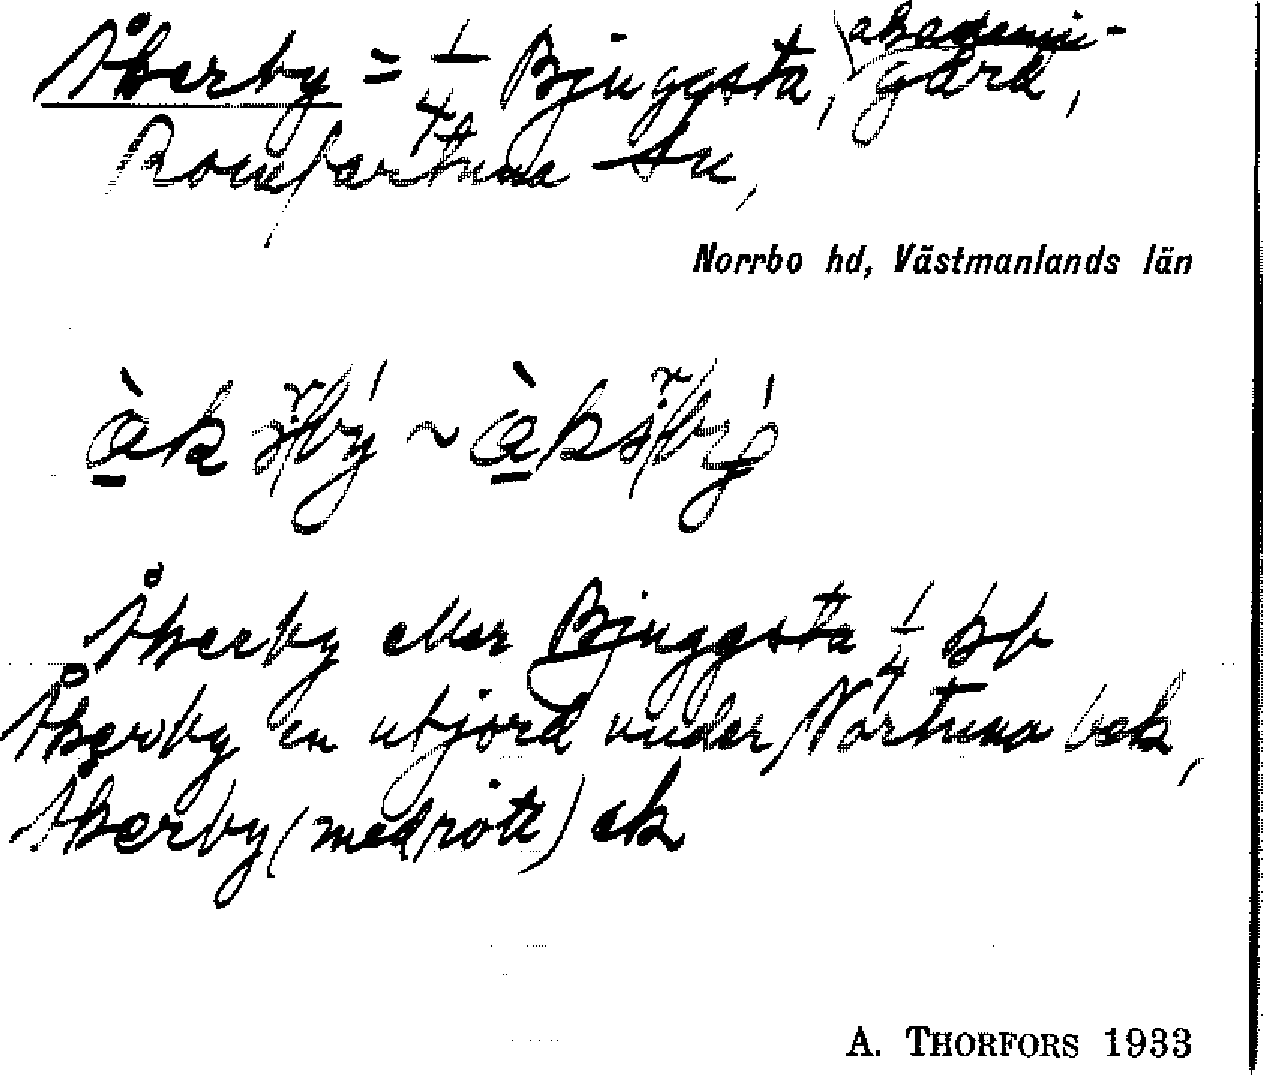 Åkerby = 1/4 Bjuggsta, akademi-
gård,
Romfartuna sn,
Norrbo hd, Västmanlands län
Åkerby eller Bjuggsta 1/4 jb
Åkerby en utjord under Nortuna bek,
Åkerby (med rött) ek
A. THORFORS 1933